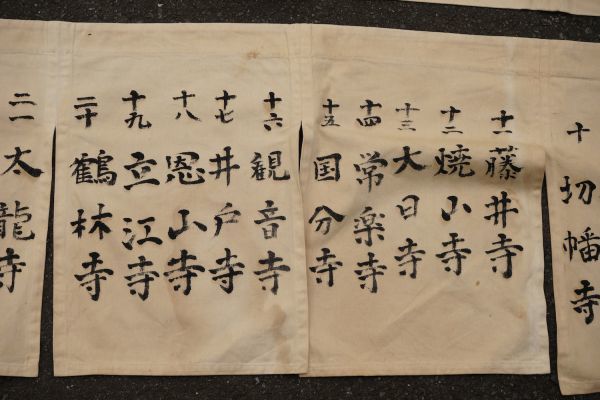 十 切幡寺
十一 藤井寺
十二 焼山寺
十三 大日寺
十四 常楽寺
十五 国分寺
十六 観音寺
十七 井戸寺
十八 恩山寺
十九 立江寺
二十 鶴林寺
二一 太龍寺